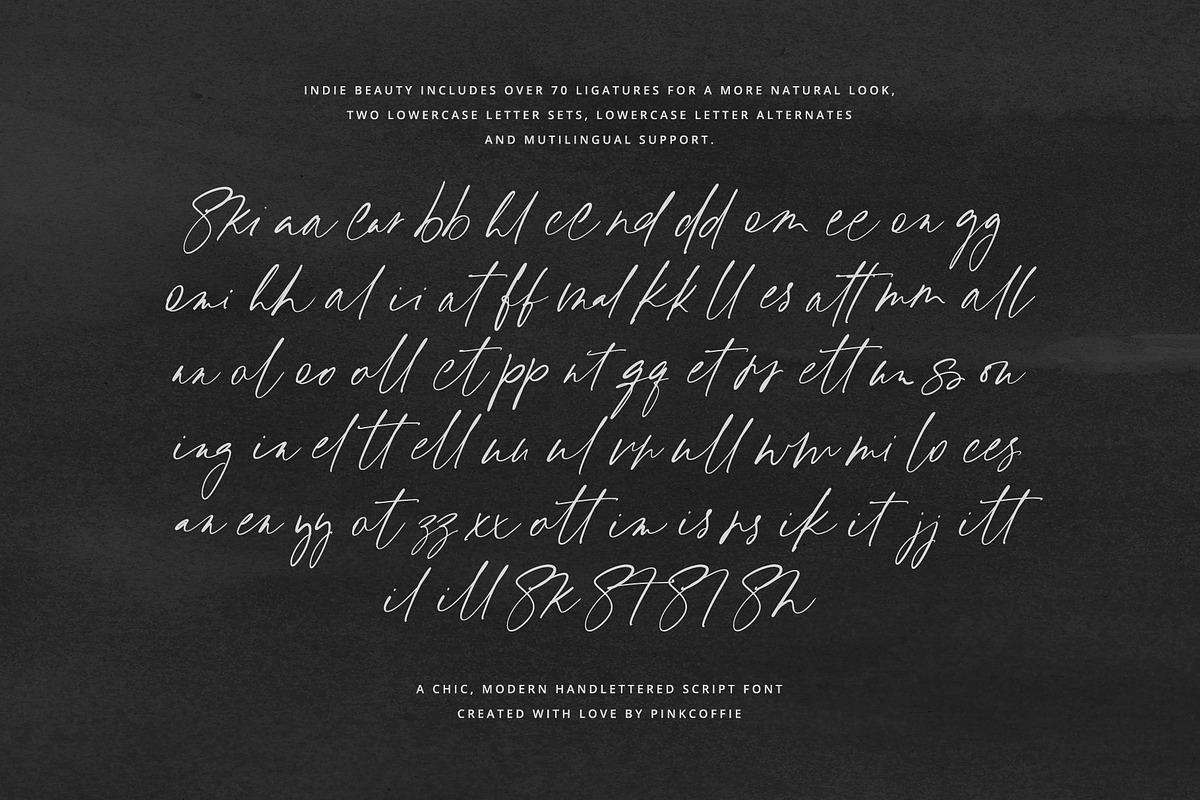 INDIE BEAUTY INCLUDES OVER 70 LIGATURES FOR A MORE NATURAL LOOK,
TWO LOWERCASE LETTER SETS, LOWERCASE LETTER ALTERNATES
AND MUTILINGUAL SUPPORT.
Ski aa ear bb hl cc nd dd om ee on gg
omi hh al ii at ff nd kk ll es att mm all
an ol oo oll ct pp nt gg et rr ett un ss on
ing in el tt ell uu ul vr ull wm mi lo ces
an en yy ot zz xx ott im is rs ik it jj itt
il ill Sk St Sl Sh
A CHIC, MODERN HANDLETTERED SCRIPT FONT
CREATED WITH LOVE BY PINKCOFFIE